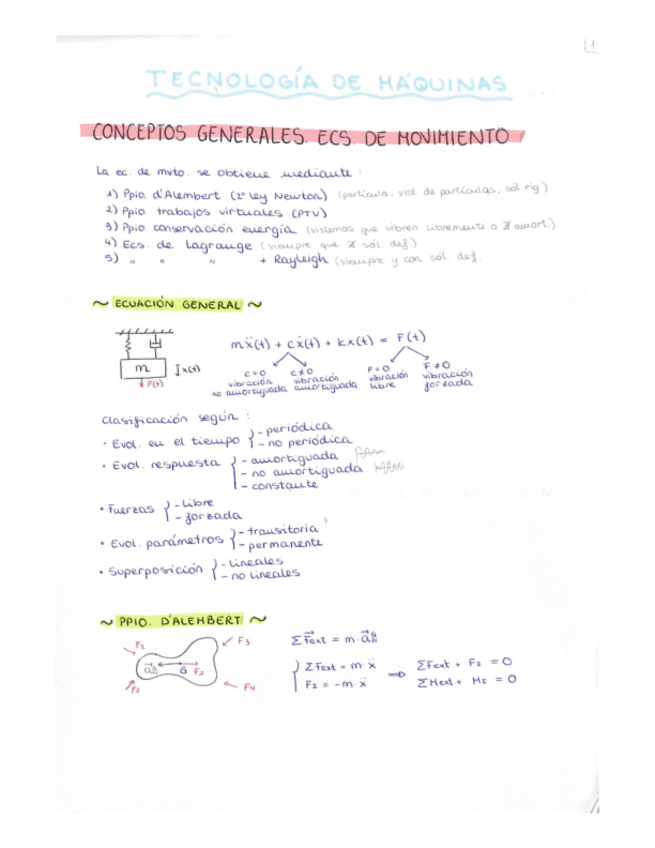 1
TECNOLOGÍA DE MÁQUINAS
CONCEPTOS GENERALES. ECS. DE MOVIMIENTO
La ec. de mvto. se obtiene mediante:
1) Ppio. d'Alembert (2ª ley Newton) (partícula, sist. de partículas, sól. ríg.)
2) Ppio trabajos virtuales (PTV)
3) Ppio. conservación energía (sistemas que vibren libremente o ∄ amort.)
4) Ecs. de Lagrange (siempre que ∄ sól. def.)
5) " " " + Rayleigh (siempre y con sól. def.
~ ECUACIÓN GENERAL ~
mẍ(t) + cẋ(t) + kx(t) = F(t)
m
x(t)
F(t)
c=0 vibración no amortiguada
c≠0 vibración amortiguada
F=0 vibración libre
F≠0 vibración forzada
Clasificación según:
• Evol. en el tiempo } - periódica
- no periódica
• Evol. respuesta { - amortiguada
- no amortiguada
- constante
• Fuerzas } - Libre
- forzada
• Evol. parámetros } - transitoria
- permanente
• Superposición } - Lineales
- no lineales
~ PPIO. D'ALEMBERT ~
F2
F3
G
F4
ΣFext = m·a
ΣFext = m·ẍ
FI = -m·ẍ
⇒
ΣFext + FI = 0
ΣMext + MI = 0